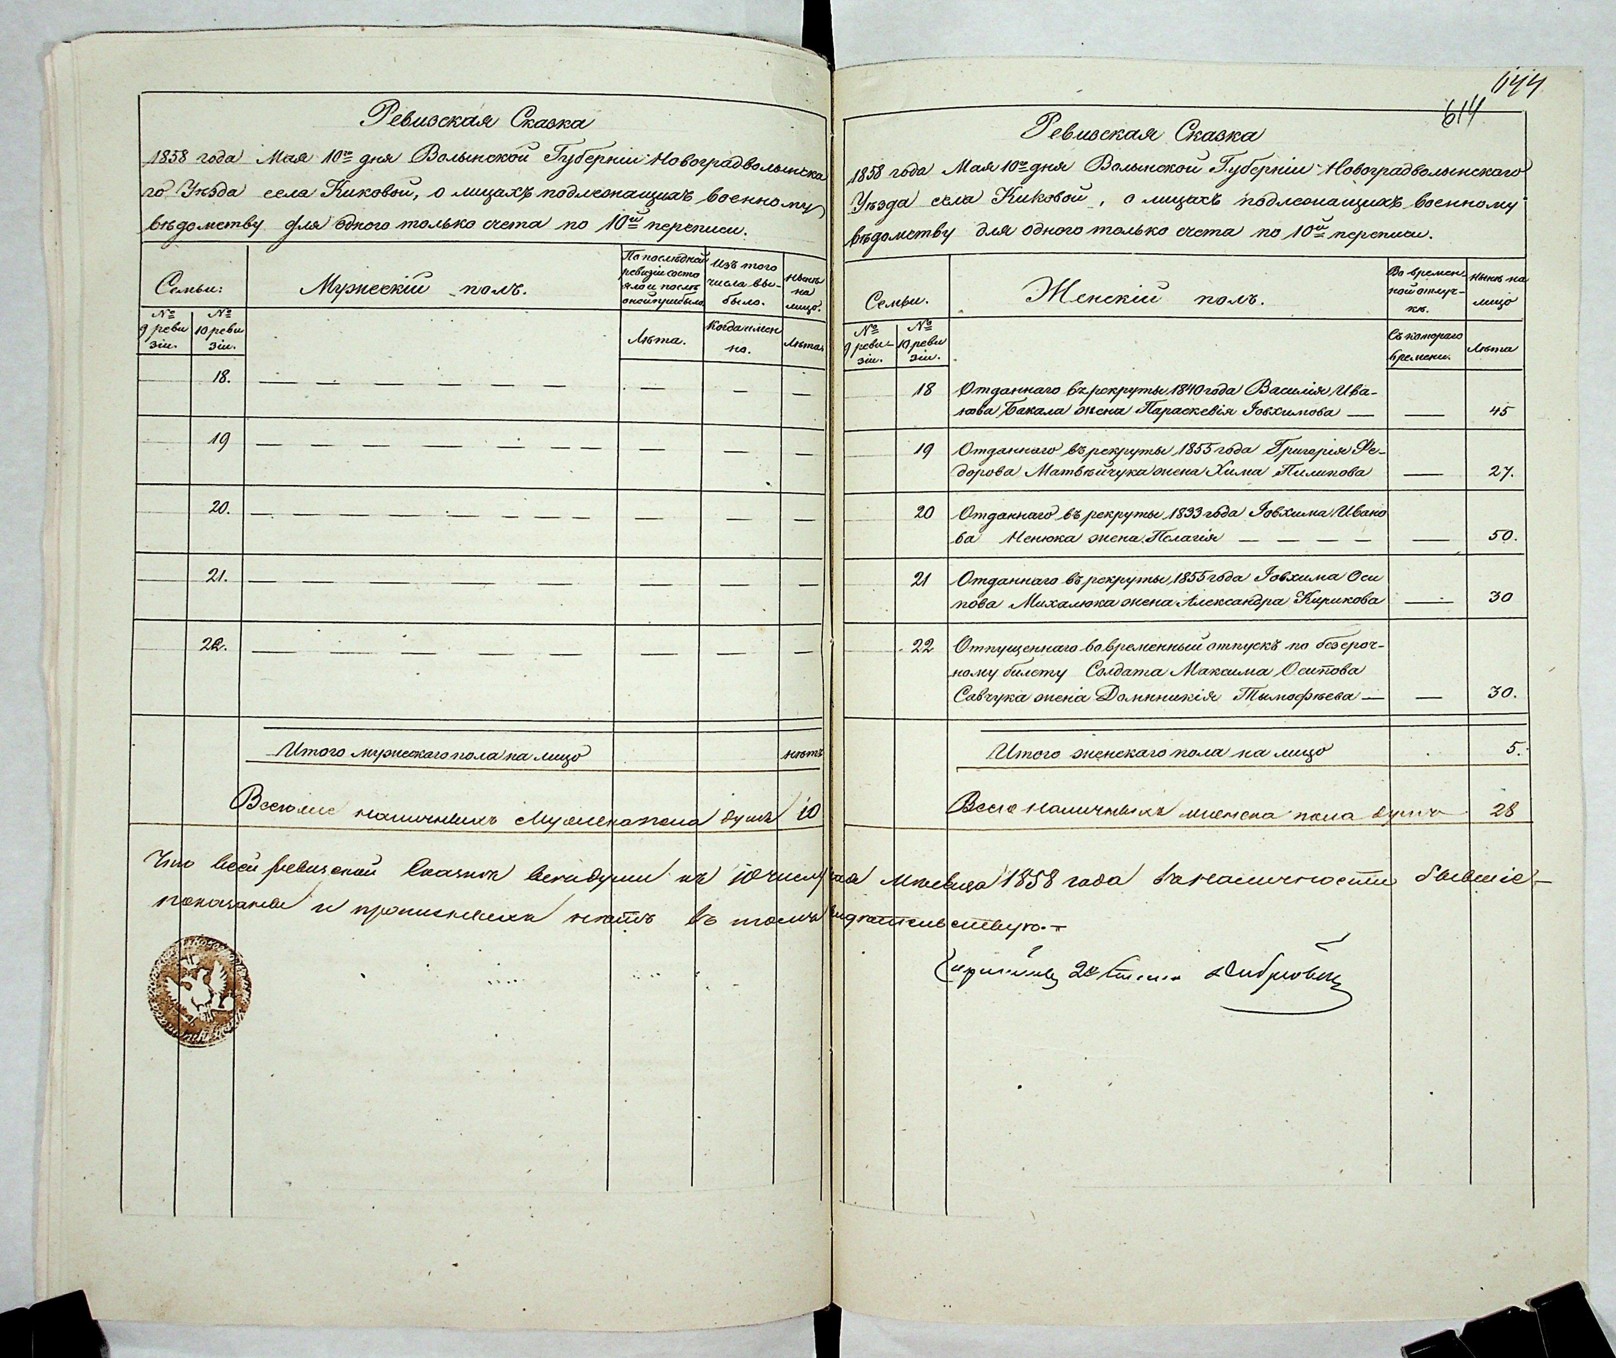 Ревизская Сказка
1858 года Мая 10го дня Волынской Губерніи Новоградволынска
го Уѣзда села Киковой, о лицахъ подлежащихъ военному
вѣдомству для одного только счета по 10й переписи.
Семьи:
Мужескій полъ.
По последней
ревизіи состо
яло и послѣ
оной прибыло
Изъ того
числа вы-
было.
Нынѣ
на
лицо.
№
9 реви
зіи.
№
10 реви
зіи.
Лѣта.
Когда имен
но.
Лѣта
18.
19
20.
21.
22.
Итого мужескаго пола на лицо нѣтъ
наличныхъ душъ 10
614
Ревизская Сказка
1858 года Мая 10го дня Волынской Губерніи Новоградволынскаго
Уѣзда села Киковой, о лицахъ подлежащихъ военному
вѣдомству для одного только счета по 10й переписи.
Семьи.
Женскій полъ.
Во времен
ной отлуч-
кѣ.
Нынѣ на
лицо
№
9 реви-
зіи.
№
10 реви
зіи.
Съ котораго
времени.
Лѣта
18 Отданнаго въ рекруты 1840 года Василія Ива-
нова Бакала жена Параскевія Іовхимова 45
19 Отданнаго въ рекруты 1855 года Григорія Фе-
дорова Матвѣйчука жена Хима Пилипова 27.
20 Отданнаго въ рекруты 1833 года Іовхима Ивано
ва жена Пелагія 50.
21 Отданнаго въ рекруты 1855 года Іовхима Оси
пова Михалюка жена Александра Кирикова 30
22 Отпущеннаго во временный отпускъ по безсроч-
ному билету Солдата Максима Осипова
Савчука жена Домникія Тымофѣева 30.
Итого женскаго пола на лицо 5.
Всего наличныхъ женска пола душъ 28
Что въ сей ревизской Сказкѣ всѣ души къ 10 числу мая мѣсяца 1858 года въ наличности бывшіе
показаны и прописныхъ нѣтъ въ томъ свидѣтельствую.